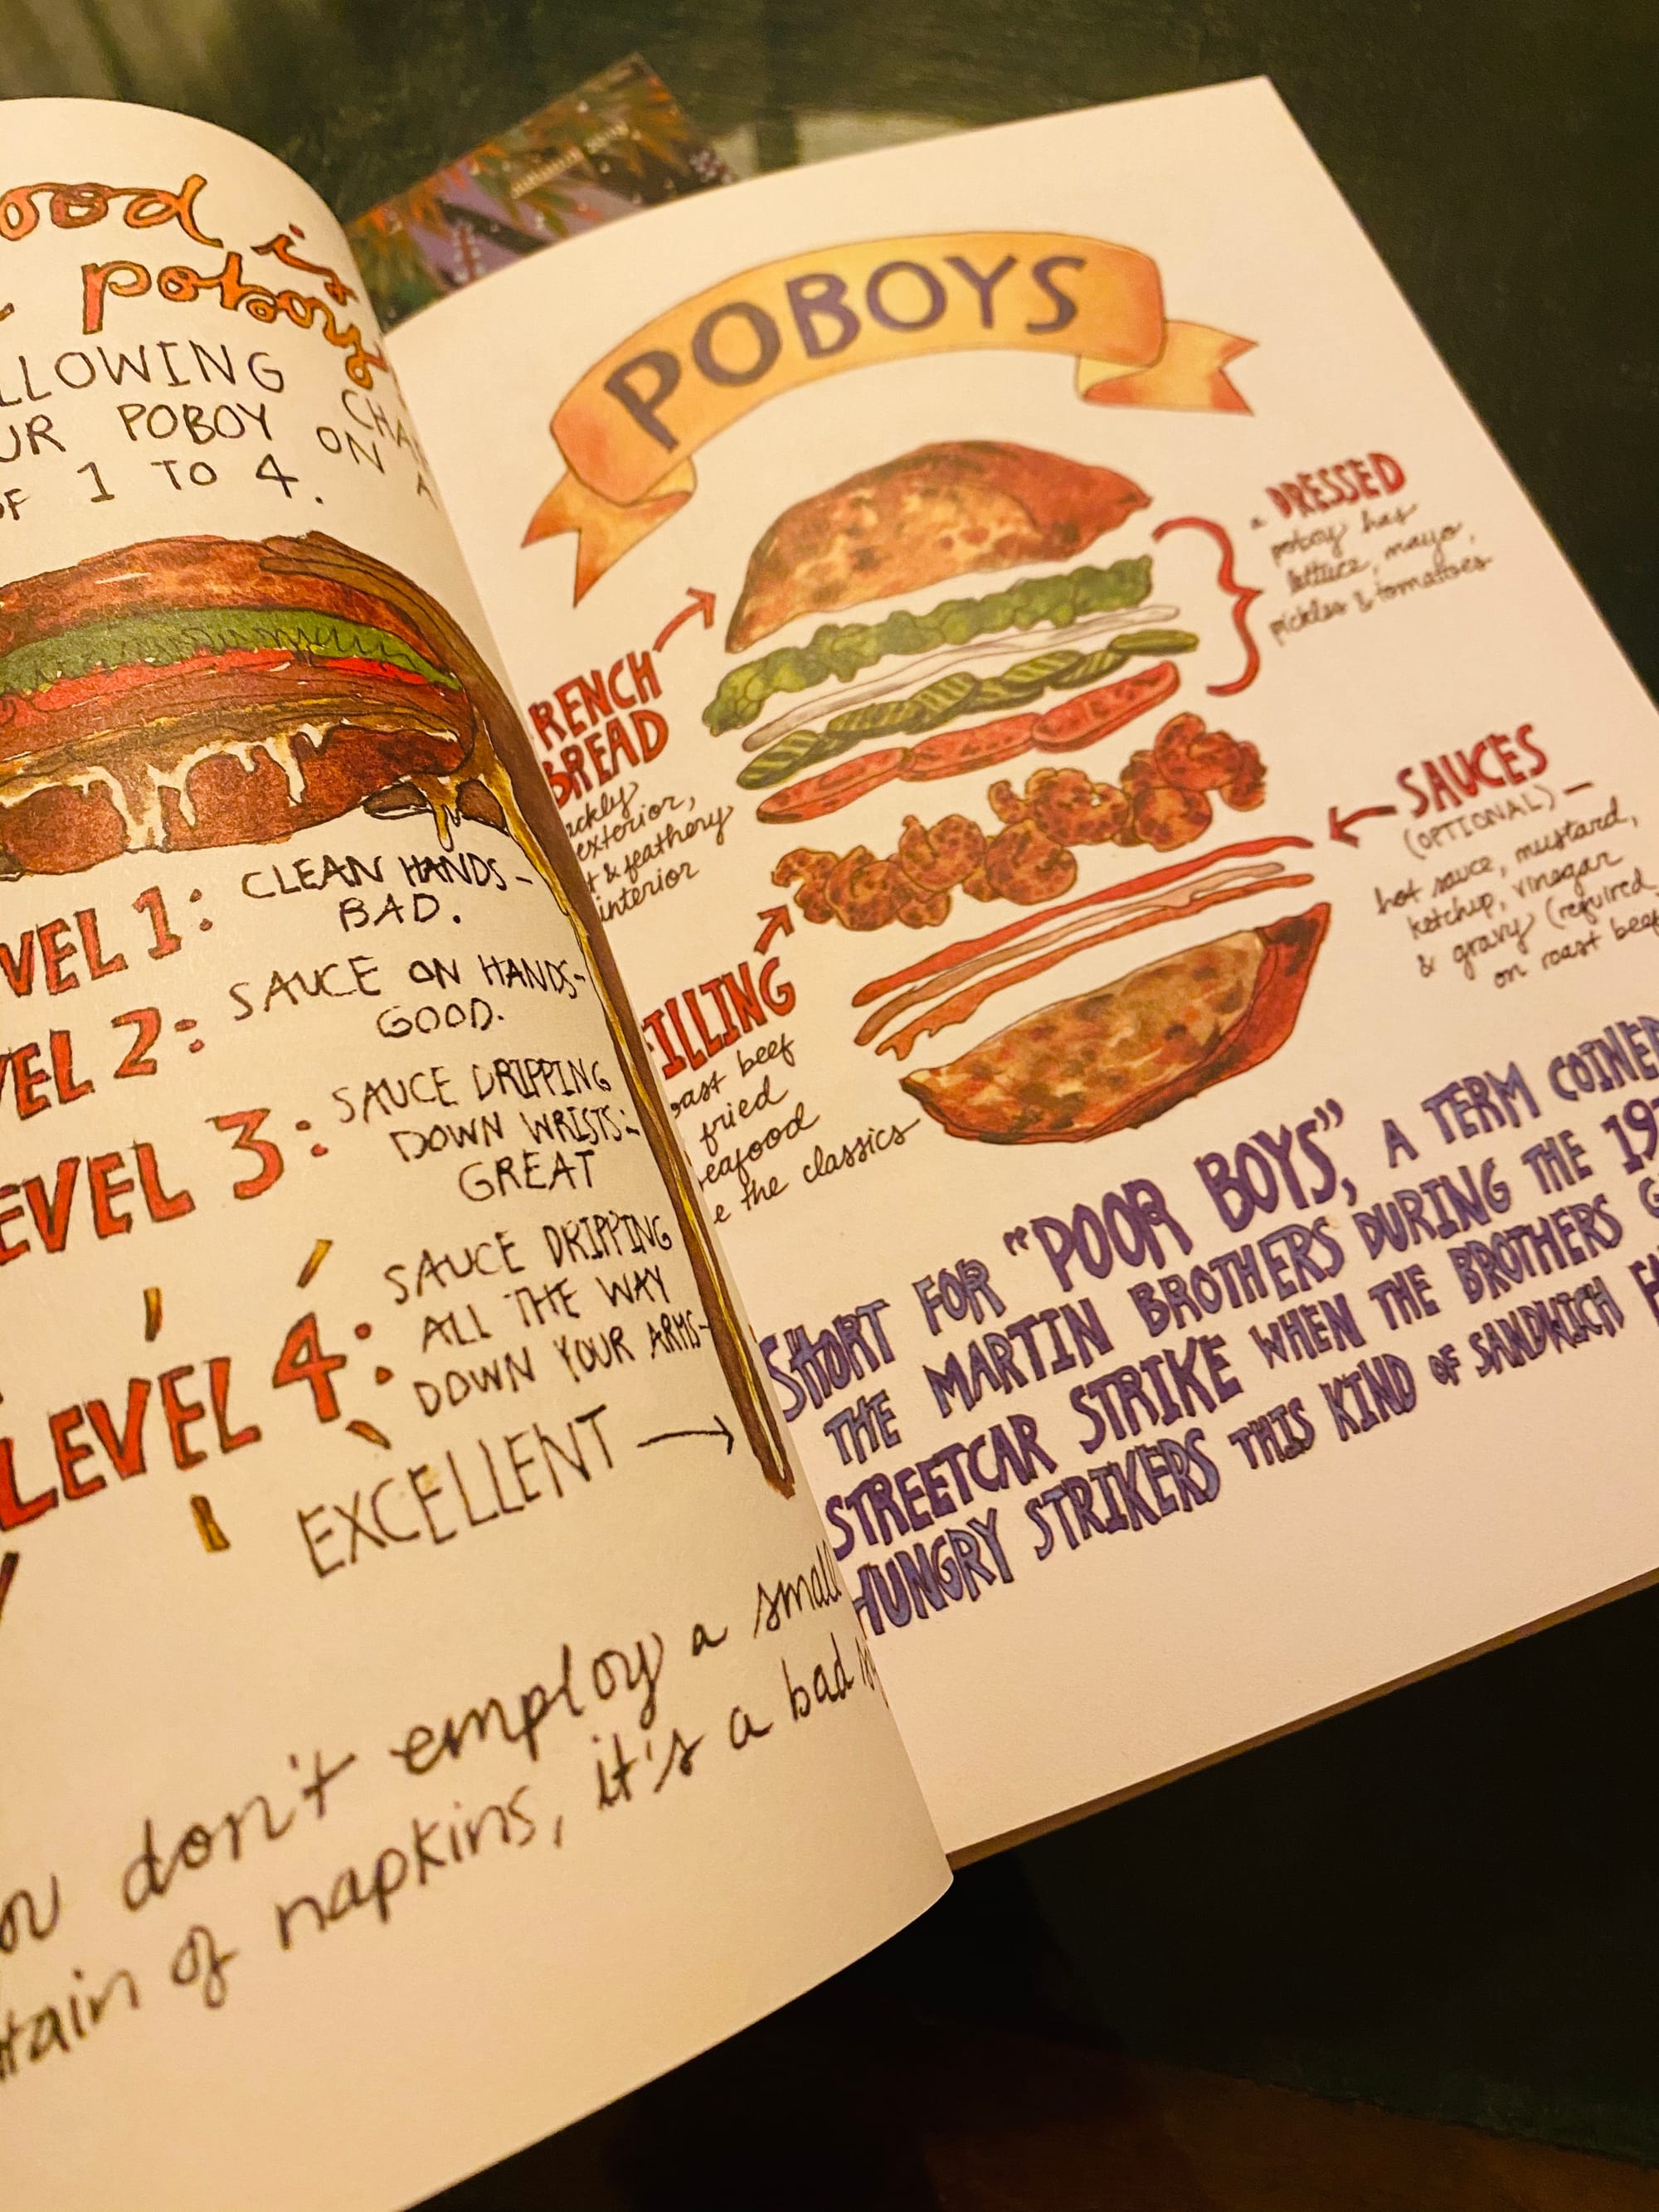 ood is
poboy
LLOWING CHA
UR POBOY ON A
OF 1 TO 4.
VEL 1: CLEAN HANDS-
BAD.
VEL 2: SAUCE ON HANDS-
GOOD.
EVEL 3: SAUCE DRIPPING
DOWN WRISTS-
GREAT
LEVEL 4: SAUCE DRIPPING
ALL THE WAY
DOWN YOUR ARMS-
EXCELLENT
ou don't employ a small
tain of napkins, it's a bad
POBOYS
a DRESSED
poboy has
lettuce, mayo,
pickles & tomatoes
RENCH
BREAD
ackly
exterior,
t & feathery
interior
SAUCES
(OPTIONAL) —
hot sauce, mustard,
ketchup, vinegar
& gravy (required
on roast beef
ILLING
oast beef
fried
eafood
e the classics
SHORT FOR "POOR BOYS", A TERM COINED
THE MARTIN BROTHERS DURING THE 19
STREETCAR STRIKE WHEN THE BROTHERS G
HUNGRY STRIKERS THIS KIND OF SANDWICH F